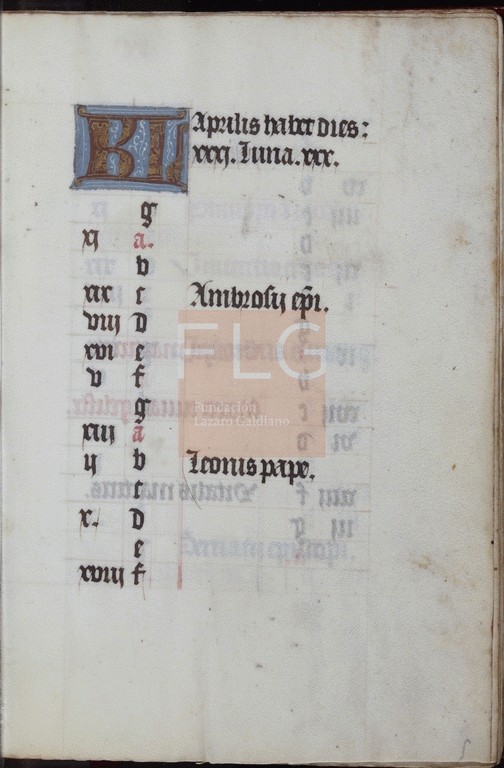 KL Aprilis habet dies:
xxxj. Luna. xxx.
g
xj a.
b
xix c Ambrosij ep̄i.
viij D
xvi e
v f
g
xiij a
ij b Leonis pape.
c
x. D
e
xviij f
FLG
Fundación
Lázaro Galdiano
5